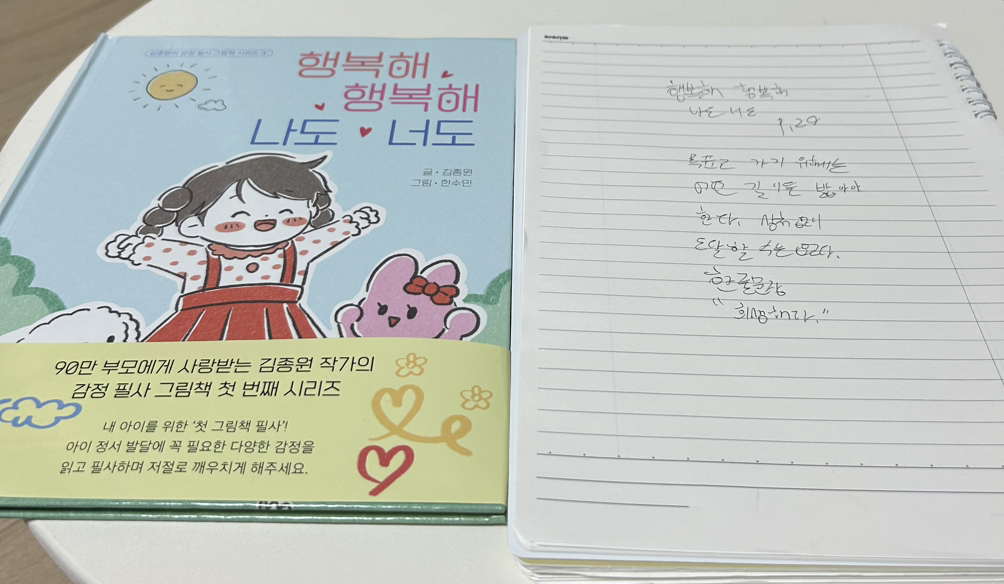 김종원의 감정 필사 그림책 시리즈 1
행복해
행복해
나도 너도
글 · 김종원
그림 · 한수민
90만 부모에게 사랑받는 김종원 작가의
감정 필사 그림책 첫 번째 시리즈
내 아이를 위한 '첫 그림책 필사'!
아이 정서 발달에 꼭 필요한 다양한 감정을
읽고 필사하며 저절로 깨우치게 해주세요.
행복해 행복해
나도 너도
목표로 가기 위해는
어떤 길이든 밟아야
한다.
도달할 수는 없다.
한줄문장